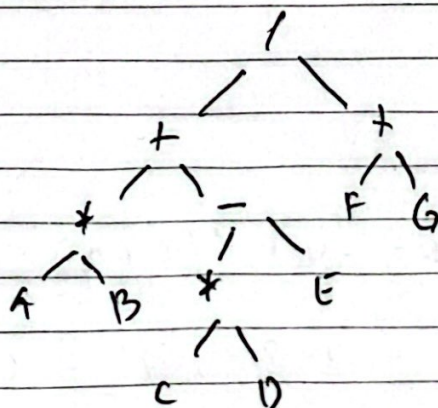 /
+ +
* - F G
A B * E
C D